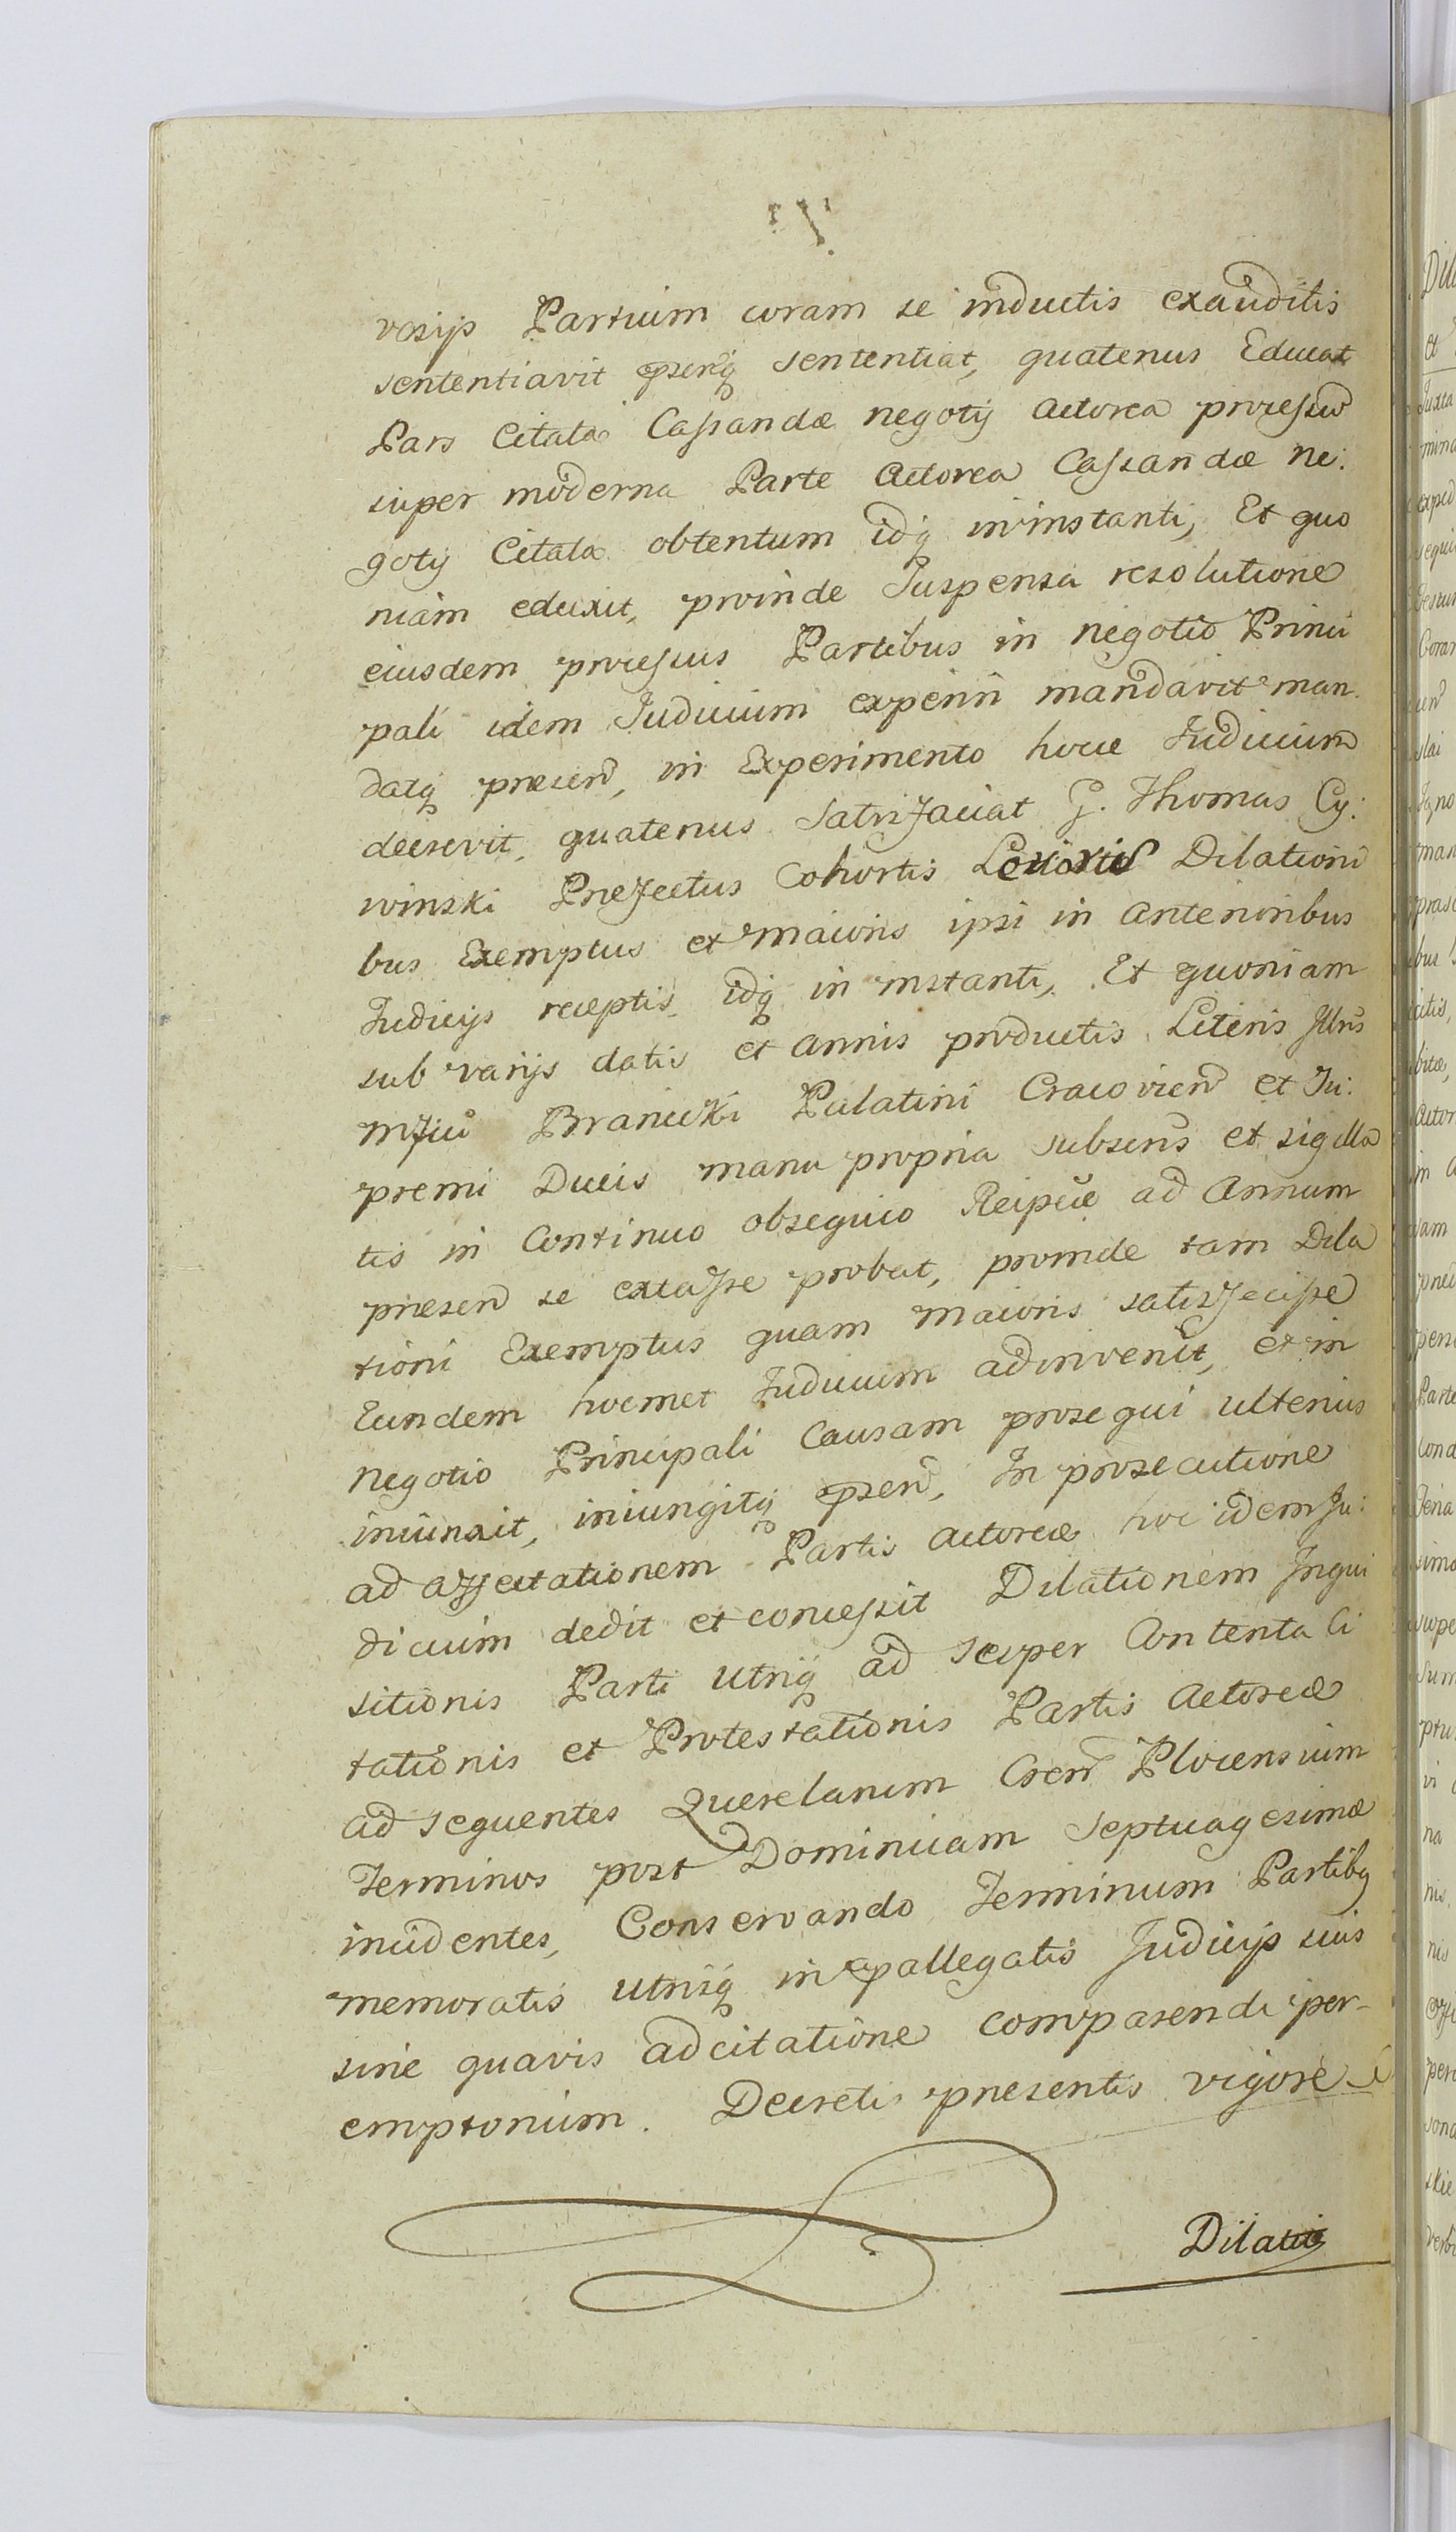 versijs Partium coram se inductis exauditis
sententiavit pñsenq̃ sententiat, quatenus Educat
Pars Citata Cassandæ negotij Actorea processum
super moderna Parte Actorea Cassandæ ne:
gotij Citata obtentum idq̃ in instanti, Et quo
niam eduxit, proinde Suspensa resolutione
eiusdem processus Partibus in negotio Princi
pali idem Iudicium experiri mandavit man
datq̃ præsen̄, in Experimento hocce Iudicium
decrevit, quatenus Satisfaciat G. Thomas Cy:
winski Præfectus Cohortis Dilationi
bus Exemptus et Maioris ipsi in anterioribus
Iudicijs receptis, idq̃ in instanti, Et quoniam
sub varijs datis et annis productis Literis Illris
Mfici Branicki Palatini Cracovien̄ et Su:
premi Ducis manu propria subscris et sigilla
tis in Continuo obsequio Reipcæ ad Annum
præsen̄ se extasse probat, proinde tam Dila
tioni Exemptus quam Maioris satisfecisse
Eundem hocmet Iudicium adinvenit, et in
negotio Principali Causam prosequi ulterius
iniunxit, iniungitq̃ pñsen̄, In prosecutione
ad affectationem Partis Actoreæ hoc idem Iu:
dicium dedit et concessit Dilationem Inqui
sitionis Parti utriq̃ ad super Contenta Ci
tationis et Protestationis Partis Actoreæ
ad sequentes Querelarum Cren̄ Plocensium
Terminos post Dominicam Septuagesimæ
incidentes, Conservando Terminum Partibq̃
memoratis utrisq̃ in pallegatis Iudicijs suis
sine quavis adcitatione comparendi per-
emptorium. Decreti præsentis vigore